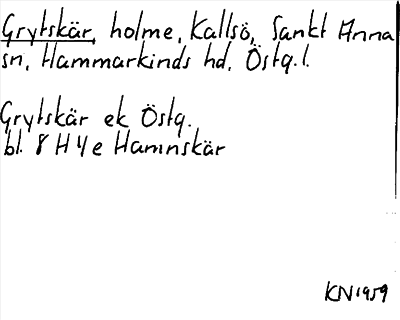 Grytskär, holme, Kallsö, Sankt Anna
sn, Hammarkinds hd, Östg.l.
Grytskär ek Östg.
bl. 8 H 4e Hamnskär
KN 1959